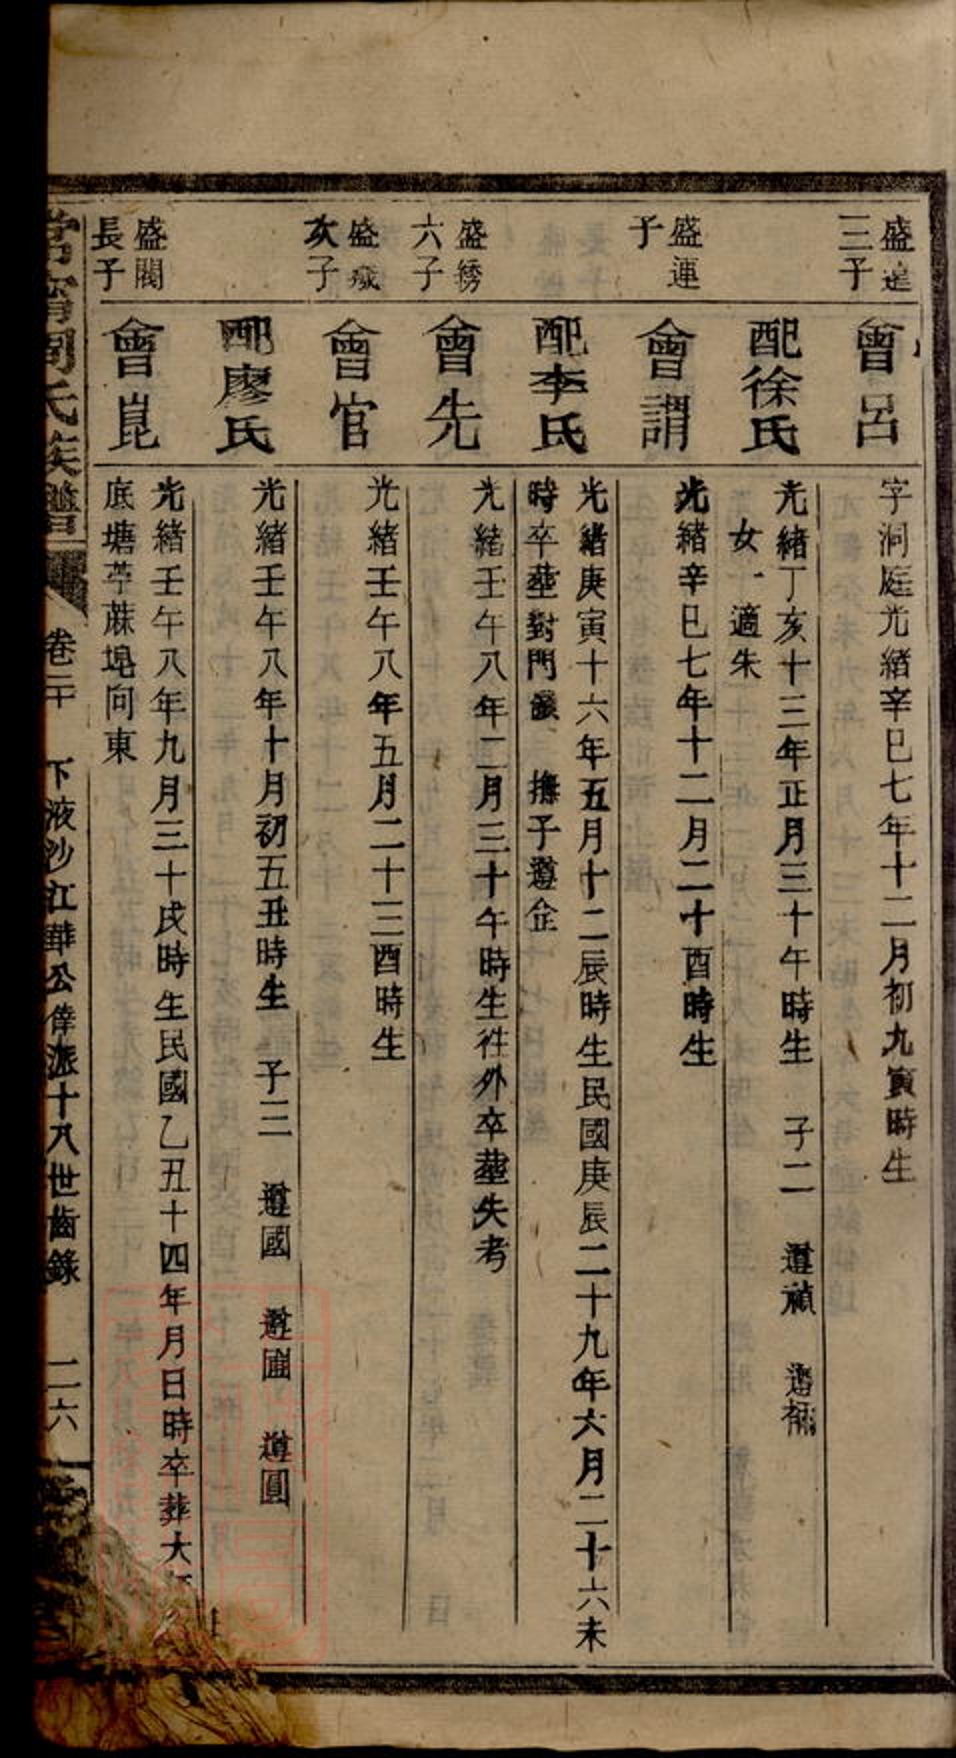 盛達
三子
會呂
字洞庭光緒辛巳七年十二月初九寅時生
配徐氏
光緒丁亥十三年正月三十午時生 子二 遵禎 遵
女一適朱
盛連
子
會謂
光緒辛巳七年十二月二十酉時生
配李氏
光緒庚寅十六年五月十二辰時生民國庚辰二十九年六月二十六未
時卒塟對門 撫子遵企
盛綉
六子
會先
光緒壬午八年二月三十午時生往外卒塟失考
盛
次子
會官
光緒壬午八年五月二十三酉時生
配廖氏
光緒壬午八年十月初五丑時生 子三 遵國 遵 遵圓
盛閣
長子
會崑
光緒壬午八年九月三十戌時生民國乙丑十四年月日時卒葬大
底塘苧蔴埠向東
常寧周氏族譜
卷二十 下液沙江華公偉派十八世齒錄 二六